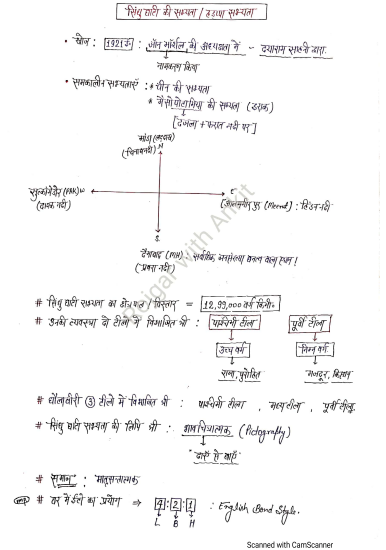 सिंधु घाटी की सभ्यता / हड़प्पा सभ्यता
• खोज : 1921 ई० : जॉन मॉर्शल की अध्यक्षता में - दयाराम साहनी द्वारा
नामकरण किया
• समकालीन सभ्यताएँ : * चीन की सभ्यता
* मैसोपोटामिया की सभ्यता (इराक)
[दजला + फरात नदी पर]
मांडा
(चिनाब नदी)
N
सुत्कांगेडोर (PAK) W
(दाश्क नदी)
E
आलमगीरपुर (Meerut) : हिंडन नदी
S
दैमाबाद (MH) : सर्वाधिक जनसंख्या घनत्व वाला स्थल।
(प्रवरा नदी)
# सिंधु घाटी सभ्यता का क्षेत्रफल / विस्तार = 12,99,000 वर्ग किमी०
# उनकी व्यवस्था दो टीलों में विभाजित थी : पश्चिमी टीला पूर्वी टीला
उच्च वर्ग निम्न वर्ग
राजा, पुरोहित मजदूर, किसान
# धोलावीरा ③ टीले में विभाजित थी : पश्चिमी टीला, मध्य टीला, पूर्वी टीला
# सिंधु घाटी सभ्यता की लिपि थी : भावचित्रात्मक (Pictography)
दाएँ से बाएँ
# समाज : मातृसत्तात्मक
# घर में ईंटों का प्रयोग ⇒ 4 : 2 : 1 : English Bond Style.
L B H
with Ankit
Scanned with CamScanner